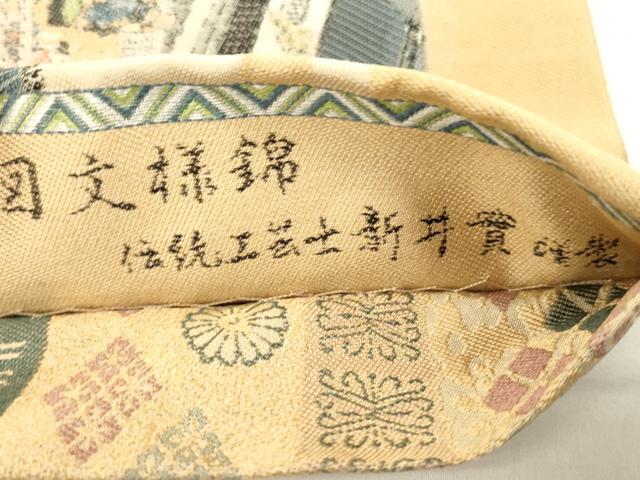 図文様錦
伝統工芸士新井實謹製